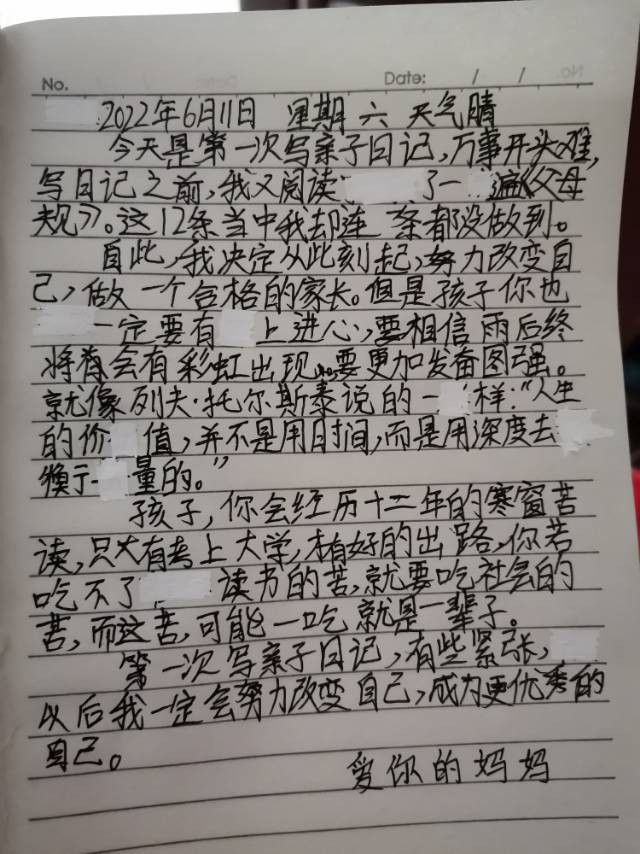 No. Date: / /
2022年6月11日 星期六 天气晴
今天是第一次写亲子日记,万事开头难,
写日记之前,我又阅读了一遍《父母
规》。这12条当中我却连 条都没做到。
自此,我决定从此刻起,努力改变自
己,做一个合格的家长。但是孩子你也
一定要有 上进心,要相信雨后终
将会有彩虹出现,要更加发奋图强。
就像列夫·托尔斯泰说的一 样:“人生
的价 值,并不是用时间,而是用深度去
量的。”
孩子,你会经历十二年的寒窗苦
读,只有考上大学,才有好的出路,你若
吃不了 读书的苦,就要吃社会的
苦,而这苦,可能一吃就是一辈子。
第一次写亲子日记,有些紧张,
以后我一定会努力改变自己,成为更优秀的
自己。
爱你的妈妈